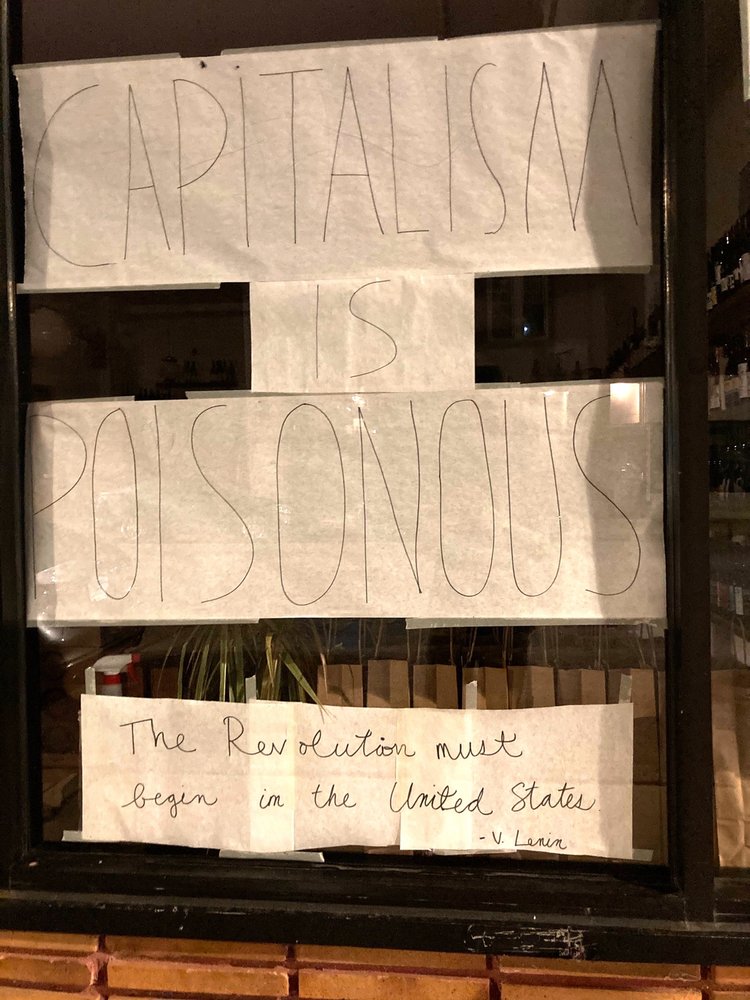 CAPITALISM
IS
POISONOUS
The Revolution must
begin in the United States.
- V. Lenin